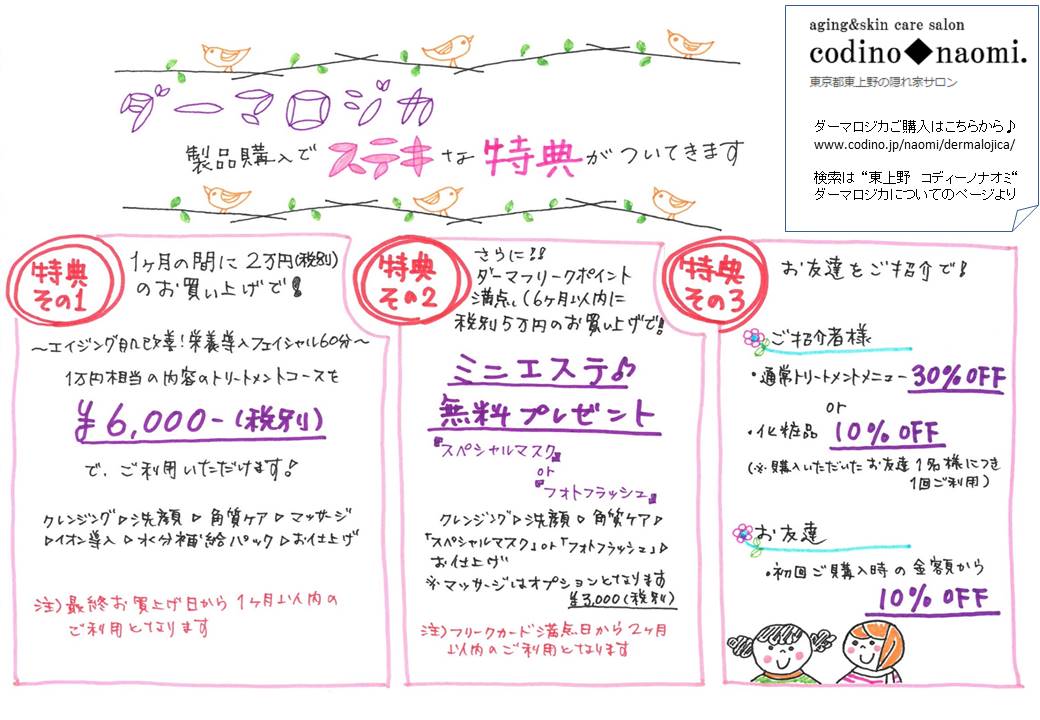 aging&skin care salon
codino◆naomi.
東京都東上野の隠れ家サロン
ダーマロジカご購入はこちらから♪
www.codino.jp/naomi/dermalojica/
検索は “東上野　コディーノナオミ“
ダーマロジカについてのページより
ダーマロジカ
製品購入でステキな特典がついてきます
特典
その1
1ヶ月の間に2万円(税別)
のお買い上げで!
～エイジング肌改善!栄養導入フェイシャル60分～
1万円相当の内容のトリートメントコースを
¥6,000-(税別)
で、ご利用いただけます!
クレンジング▷洗顔▷角質ケア▷マッサージ
▷イオン導入▷水分補給パック▷お仕上げ
注)最終お買上げ日から1ヶ月以内の
ご利用となります
特典
その2
さらに!!
ダーマフリークポイント
満点(6ヶ月以内に
税別5万円のお買い上げで!
ミニエステ♪
無料プレゼント
『スペシャルマスク』
or
『フォトフラッシュ』
クレンジング▷洗顔▷角質ケア▷
「スペシャルマスク」or「フォトフラッシュ」▷
お仕上げ
※マッサージはオプションとなります
¥3,000(税別)
注)フリークカード満点日から2ヶ月
以内のご利用となります
特典
その3
お友達をご紹介で!
ご紹介者様
・通常トリートメントメニュー30%OFF
or
・化粧品 10%OFF
(※購入いただいたお友達1名様につき
1回ご利用)
お友達
・初回ご購入時の金額から
10%OFF